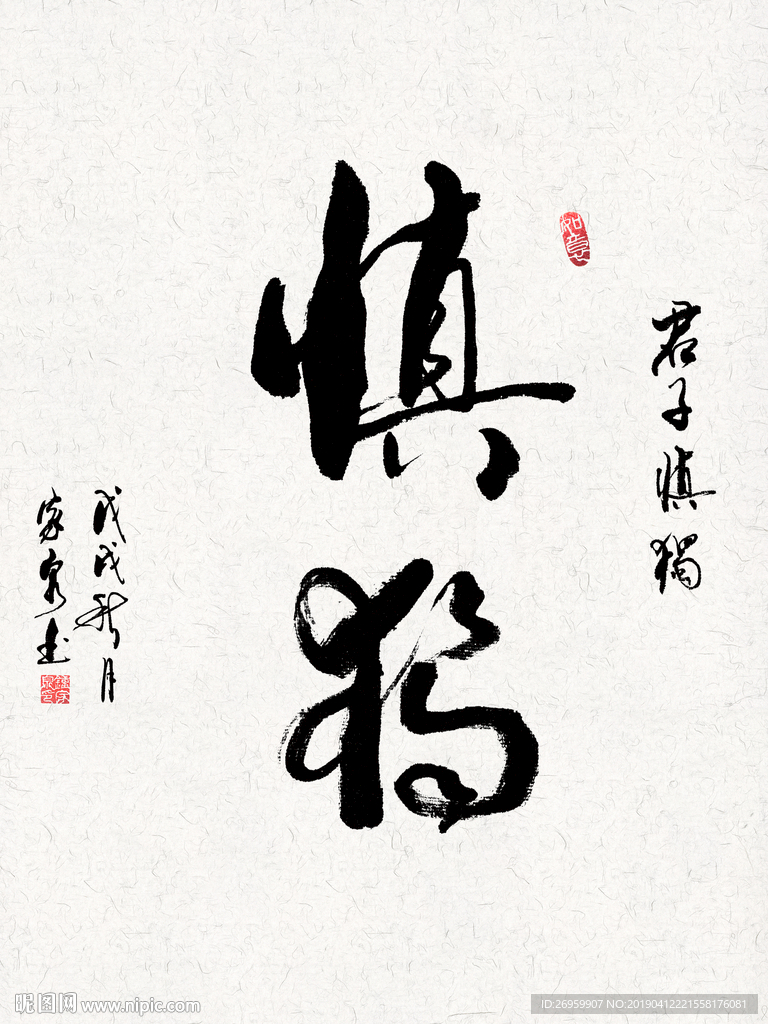 慎
獨
如意
君子慎獨
戊戌秋月
家泉書
昵图网 www.nipic.com
ID:26959907 NO:20190412221558176081